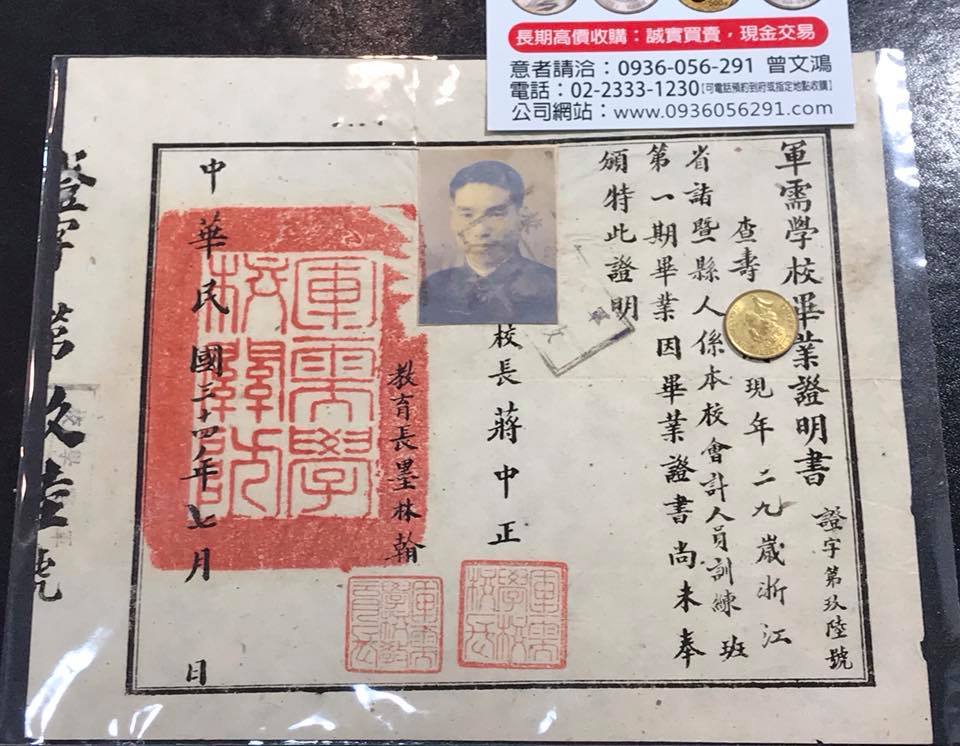 長期高價收購：誠實買賣，現金交易
意者請洽：0936-056-291 曾文鴻
電話：02-2333-1230【可電話預約到府或指定地點收購】
公司網站：www.0936056291.com
軍需學校畢業證明書
證字第玖陸號
查壽 現年二九歲浙江
省諸暨縣人係本校會計人員訓練班
第一期畢業因畢業證書尚未奉
頒特此證明
校長蔣中正
教育長墨林翰
中華民國三十四年七月 日
軍需學
校關防
軍需
學校
校長
軍需
學校教
育長
證字第玖陸號